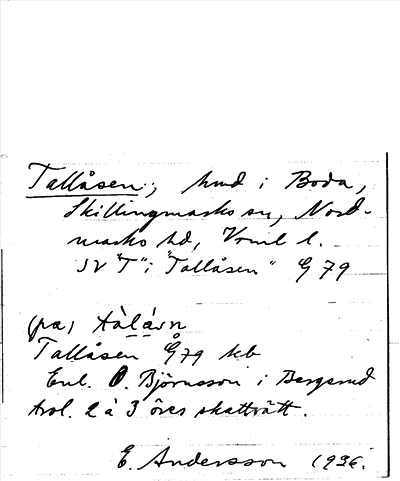 Tallåsen, hmd i Boda,
Skillingmarks sn, Nord-
marks hd, Vrml l.
SV "T" i "Tallåsen" G 79
(pa) tàlåvn
Tallåsen G 79 kb
Enl. O. Björnsson i Bergerud
trol. 2 à 3 öres skatträtt.
E. Andersson 1936.